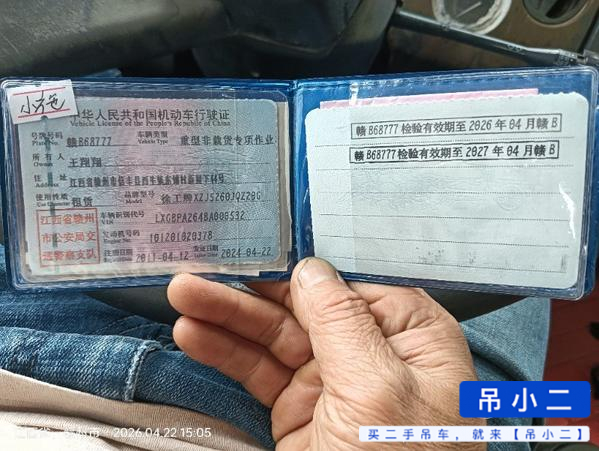 小拖
中华人民共和国机动车行驶证
Vehicle License of the People's Republic of China
号牌号码 赣B68777 车辆类型 重型非载货专项作业
Plate No. Vehicle Type
所有人 王翔翔
Owner
住址 江西省赣州市信丰县西牛镇
Address
使用性质 租赁 品牌型号 徐工牌XZJ5260JQZ20G
Model
江西省赣州
市公安局交
通警察支队
车辆识别代号 LXGBPA264BA000532
VIN
发动机号码 101201020378
Engine No.
注册日期 2011-04-12 发证日期 2024-04-22
赣B68777检验有效期至2026年04月赣B
赣B68777检验有效期至2027年04月赣B
2026.04.22 15:05
吊小二
买二手吊车，就来【吊小二】